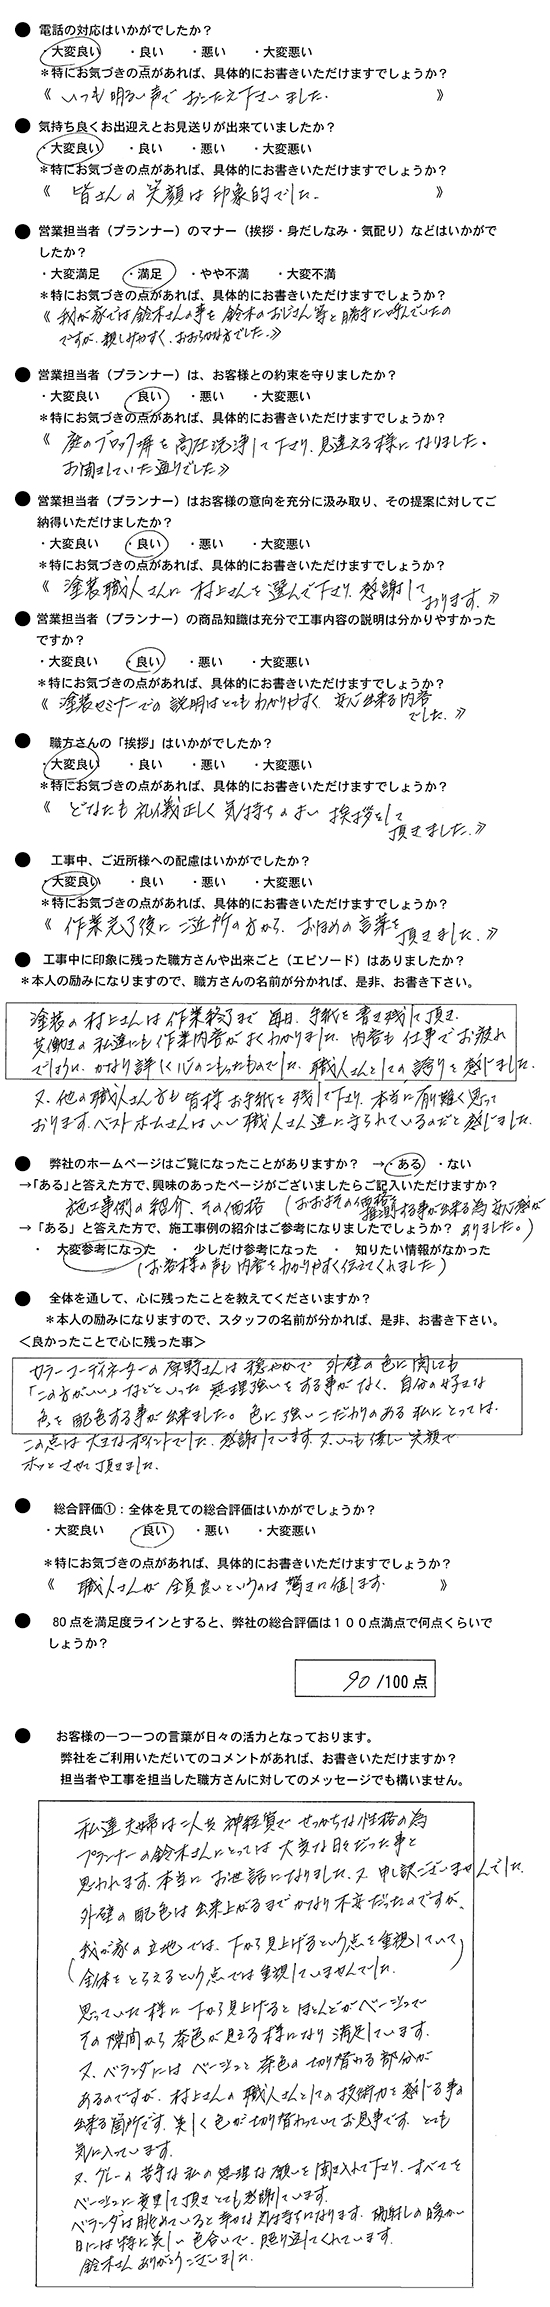 ● 電話の対応はいかがでしたか？
・大変良い ・良い ・悪い ・大変悪い
＊特にお気づきの点があれば、具体的にお書きいただけますでしょうか？
《 いつも明るい声でおこたえ下さいました. 》
● 気持ち良くお出迎えとお見送りが出来ていましたか？
・大変良い ・良い ・悪い ・大変悪い
＊特にお気づきの点があれば、具体的にお書きいただけますでしょうか？
《 皆さんの笑顔は印象的でした. 》
● 営業担当者（プランナー）のマナー（挨拶・身だしなみ・気配り）などはいかがで
したか？
・大変満足 ・満足 ・やや不満 ・大変不満
＊特にお気づきの点があれば、具体的にお書きいただけますでしょうか？
《 我が家では鈴木さんの事を鈴木のおじさん等と勝手に呼んでいたの
ですが、親しみやすく、おおらかな方でした.》
● 営業担当者（プランナー）は、お客様との約束を守りましたか？
・大変良い ・良い ・悪い ・大変悪い
＊特にお気づきの点があれば、具体的にお書きいただけますでしょうか？
《 庭のブロック塀を高圧洗浄して下さり、見違える様になりました。
お聞きしていた通りでした》
● 営業担当者（プランナー）はお客様の意向を充分に汲み取り、その提案に対してご
納得いただけましたか？
・大変良い ・良い ・悪い ・大変悪い
＊特にお気づきの点があれば、具体的にお書きいただけますでしょうか？
《 塗装職人さんに村上さんを選んで下さり、感謝して
おります.》
● 営業担当者（プランナー）の商品知識は充分で工事内容の説明は分かりやすかった
ですか？
・大変良い ・良い ・悪い ・大変悪い
＊特にお気づきの点があれば、具体的にお書きいただけますでしょうか？
《 塗装セミナーでの説明はとてもわかりやすく、安心出来る内容
でした.》
● 職方さんの「挨拶」はいかがでしたか？
・大変良い ・良い ・悪い ・大変悪い
＊特にお気づきの点があれば、具体的にお書きいただけますでしょうか？
《 どなたも礼儀正しく気持ちのよい挨拶をして
頂きました.》
● 工事中、ご近所様への配慮はいかがでしたか？
・大変良い ・良い ・悪い ・大変悪い
＊特にお気づきの点があれば、具体的にお書きいただけますでしょうか？
《 作業完了後にご近所の方から、おほめの言葉を
頂きました.》
● 工事中に印象に残った職方さんや出来ごと（エピソード）はありましたか？
＊本人の励みになりますので、職方さんの名前が分かれば、是非、お書き下さい。
塗装の村上さんは作業終了まで毎日、手紙を書き残して頂き、
共働きの私達にも作業内容がよくわかりました. 内容も仕事でお疲れ
でしょうに、かなり詳しく心のこもったものでした. 職人さんとしての誇りを感じました.
又、他の職人さん方も皆様お手紙を残して下さり、本当に有り難く思って
おります. ベストホームさんはいい職人さん達に守られているのだと感じました.
● 弊社のホームページはご覧になったことがありますか？ →・ある ・ない
→「ある」と答えた方で、興味のあったページがございましたらご記入いただけますか？
施工事例の紹介、その価格 （おおよその価格を
推測する事が出来る為安心感が
→「ある」と答えた方で、施工事例の紹介はご参考になりましたでしょうか？ ありました。）
・ 大変参考になった ・ 少しだけ参考になった ・ 知りたい情報がなかった
（お客様の声も内容をわかりやすく伝えてくれました）
● 全体を通して、心に残ったことを教えてくださいますか？
＊本人の励みになりますので、スタッフの名前が分かれば、是非、お書き下さい。
＜良かったことで心に残った事＞
カラーコーディネーターの 野さんは穏やかで 外壁の色に関しても
「この方がいい」などといった無理強いをする事がなく、自分の好きな
色を配色する事が出来ました。色に強いこだわりのある私にとっては、
この点は大きなポイントでした. 感謝しています. 又、いつも優しい笑顔で
ホッとさせて頂きました.
● 総合評価①：全体を見ての総合評価はいかがでしょうか？
・大変良い ・良い ・悪い ・大変悪い
＊特にお気づきの点があれば、具体的にお書きいただけますでしょうか？
《 職人さんが全員良いというのは驚きに値します. 》
● 80点を満足度ラインとすると、弊社の総合評価は１００点満点で何点くらいで
しょうか？
90 /100 点
● お客様の一つ一つの言葉が日々の活力となっております。
弊社をご利用いただいてのコメントがあれば、お書きいただけますか？
担当者や工事を担当した職方さんに対してのメッセージでも構いません。
私達夫婦は二人共神経質でせっかちな性格の為
プランナーの鈴木さんにとっては大変な日々だった事と
思われます. 本当にお世話になりました. 又 申し訳ございませんでした.
外壁の配色は出来上がるまでかなり不安だったのですが、
我が家の立地では、下から見上げるという点を重視していて
（全体をとらえるという点では重視していませんでした.）
思っていた様に下から見上げるとほとんどがベージュで
その隙間から茶色が見える様になり満足しています.
又、ベランダにはベージュと茶色の切り替わる部分が
あるのですが、村上さんの職人さんとしての技術力を感じる事の
出来る箇所です. 美しく色が切り替わっていてお見事です. とても
気に入っています.
又、グレーの苦手な私の無理な願いを聞き入れて下さり、すべてを
ベージュに変更して頂きとても感謝しています.
ベランダは眺めていると幸せな気持ちになります. 陽射しの暖かい
日には特に美しい色合いで、照り返してくれています.
鈴木さんありがとうございました.